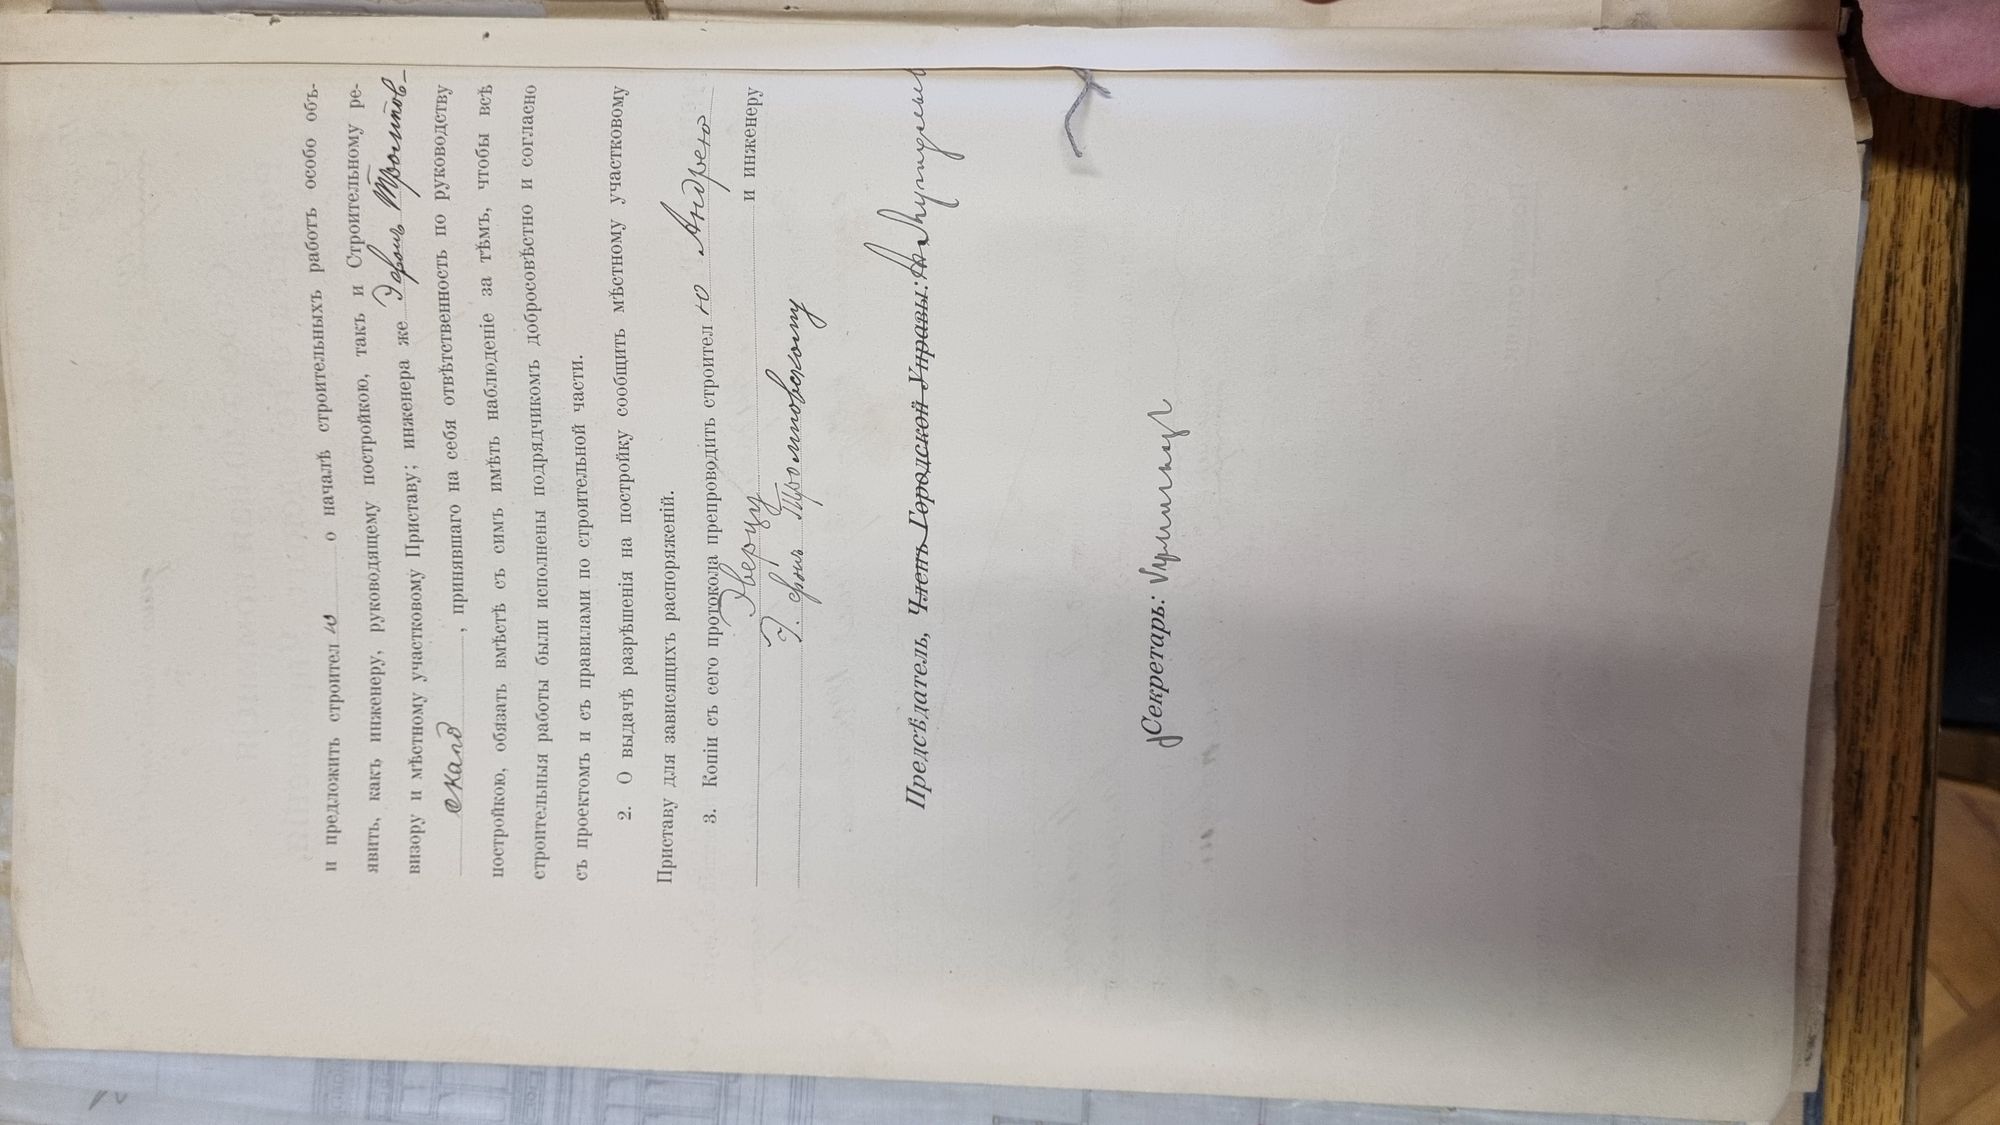 и предложить строител ю о началѣ строительныхъ работъ особо объ-
явить, какъ инженеру, руководящему постройкою, такъ и Строительному ре-
визору и мѣстному участковому Приставу; инженера же Э. фонъ Тромпов-
скаго, принявшаго на себя отвѣтственность по руководству
постройкою, обязать вмѣстѣ съ симъ имѣть наблюденіе за тѣмъ, чтобы всѣ
строительныя работы были исполнены подрядчикомъ добросовѣстно и согласно
съ проектомъ и съ правилами по строительной части.
2. О выдачѣ разрѣшенія на постройку сообщить мѣстному участковому
Приставу для зависящихъ распоряженій.
3. Копіи съ сего протокола препроводить строител ю Андрею
Эверцу и инженеру
Э. фонъ Тромповскому
Предсѣдатель, Членъ Городской Управы:
Секретарь: